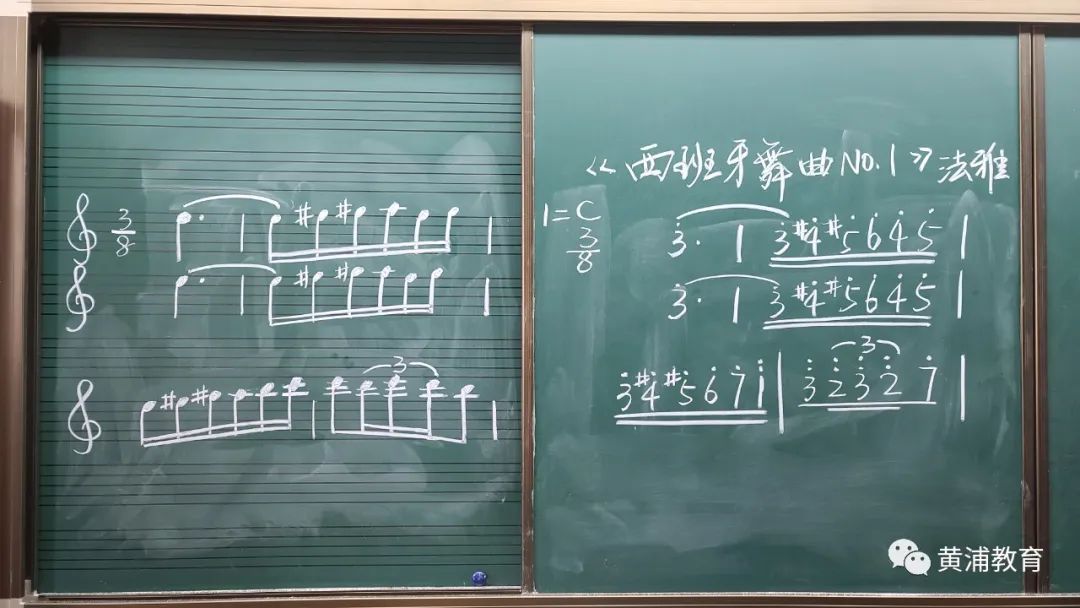 3
8
3
《西班牙舞曲No.1》法雅
1=C
3
8
3̇· | 3̇ #4̇ #5̇ 6̇ 4̇ 5̇ |
3̇· | 3̇ #4̇ #5̇ 6̇ 4̇ 5̇ |
3
3̇ #4̇ #5̇ 6̇ 7̇ 1̈ | 3̈ 2̈ 3̈ 2̈ 7̇ |
黄浦教育